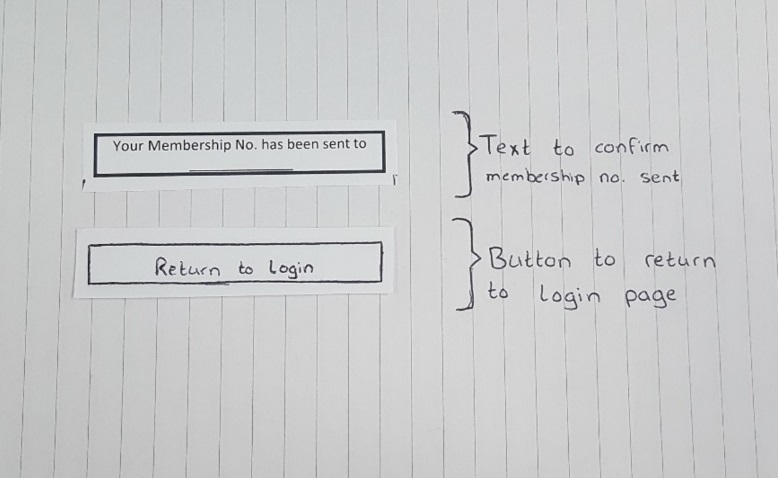 Your Membership No. has been sent to
Text to confirm
membership no. sent
Return to Login
Button to return
to login page